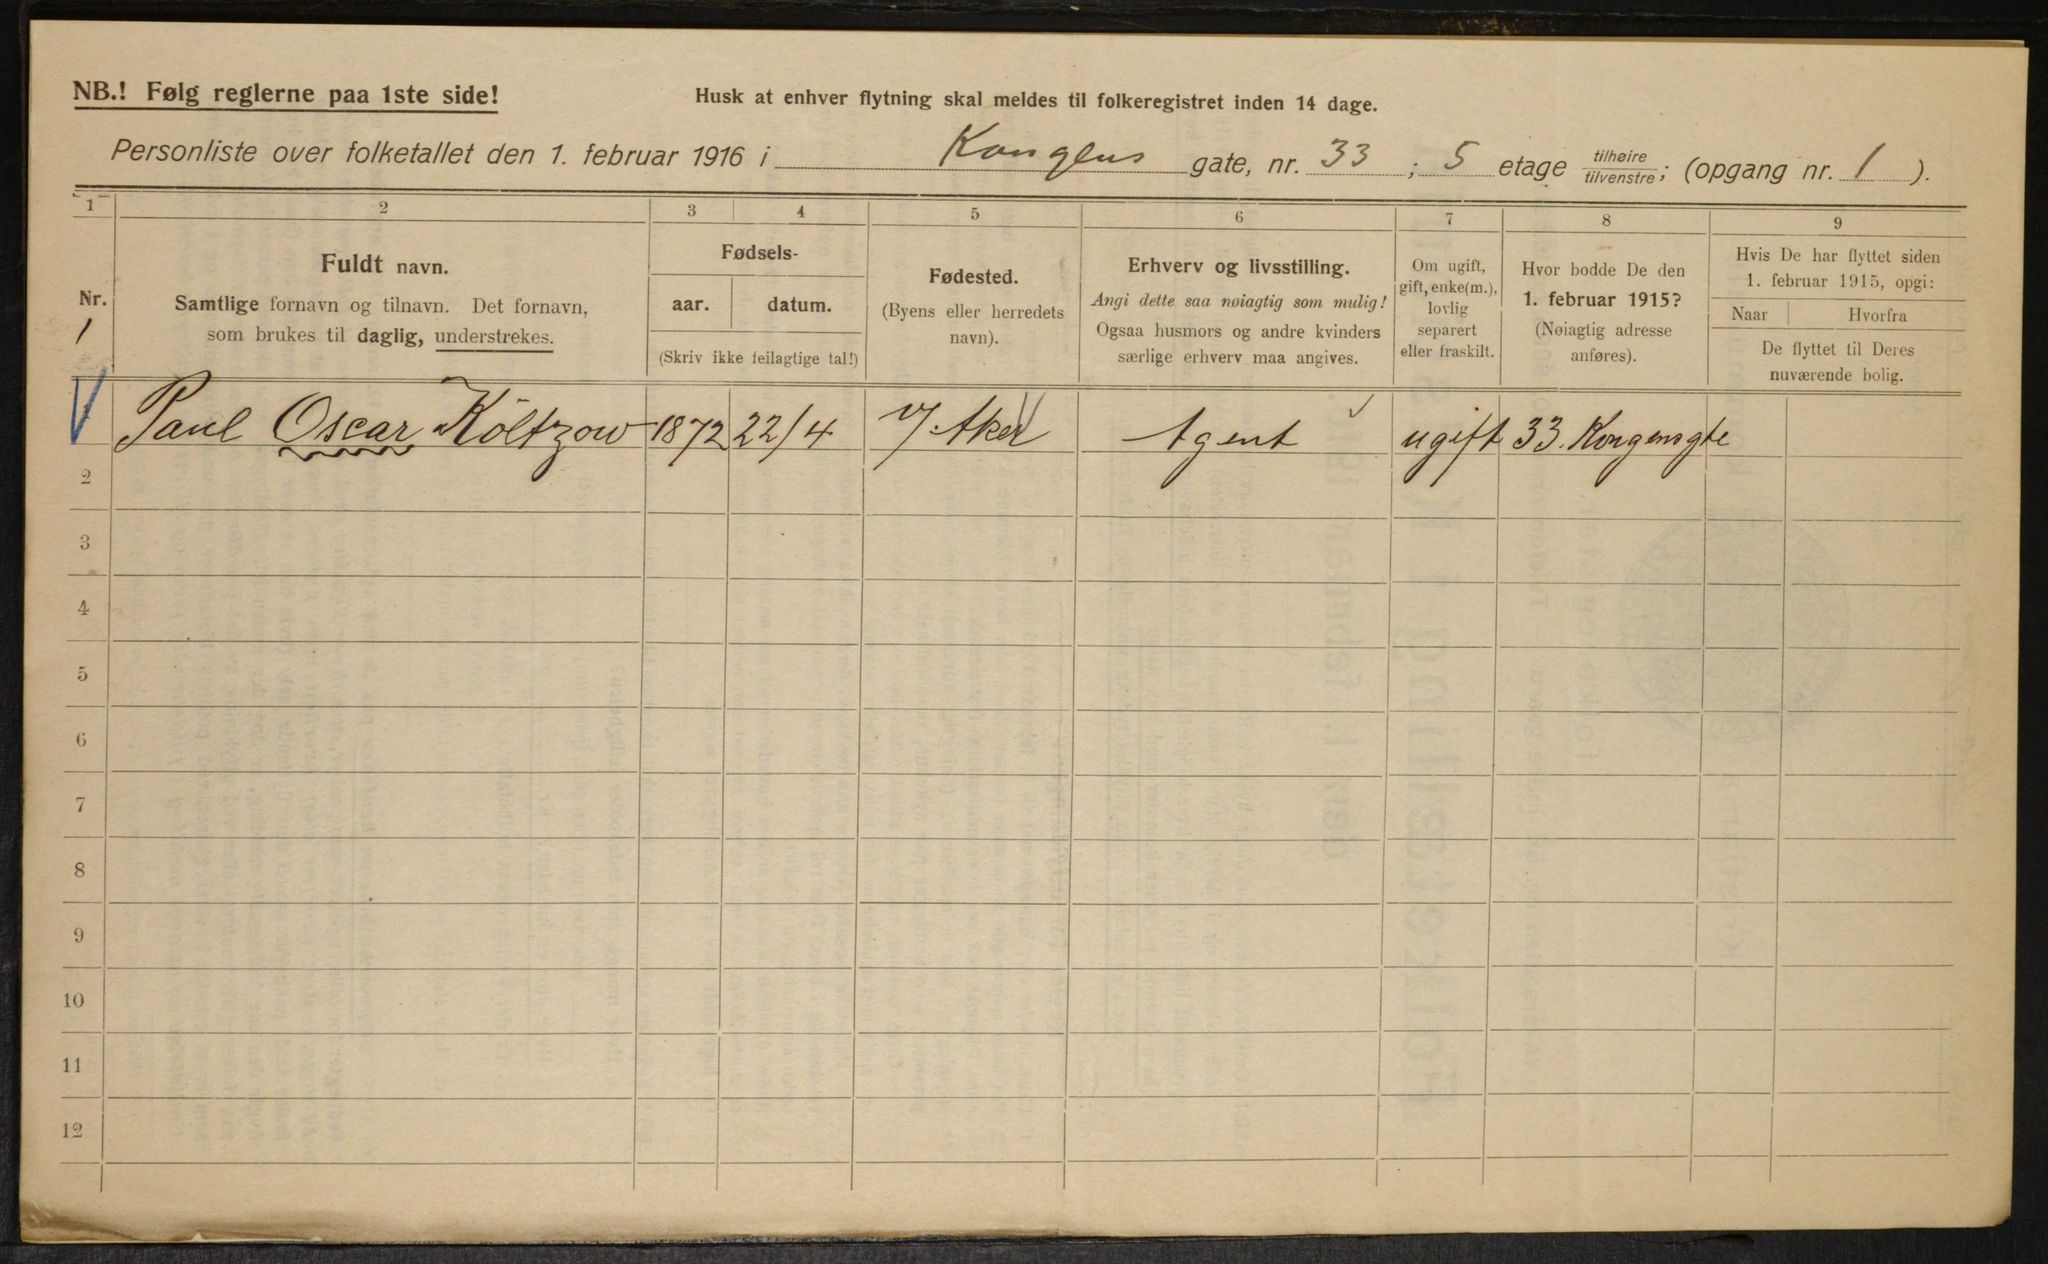 NB.! Følg reglerne paa 1ste side!
Husk at enhver flytning skal meldes til folkeregistret inden 14 dage.
Personliste over folketallet den 1. februar 1916 i Kongens gate, nr. 33; 5 etage tilhøire tilvenstre; (opgang nr. 1).
1 2 3 4 5 6 7 8 9
Nr.
Fuldt navn.
Samtlige fornavn og tilnavn. Det fornavn,
som brukes til daglig, understrekes.
Fødsels-
aar. datum.
(Skriv ikke feilagtige tal!)
Fødested.
(Byens eller herredets
navn).
Erhverv og livsstilling.
Angi dette saa nøiagtig som mulig!
Ogsaa husmors og andre kvinders
særlige erhverv maa angives.
Om ugift,
gift, enke(m.),
lovlig
separert
eller fraskilt.
Hvor bodde De den
1. februar 1915?
(Nøiagtig adresse
anføres).
Hvis De har flyttet siden
1. februar 1915, opgi:
Naar Hvorfra
De flyttet til Deres
nuværende bolig.
1 Paul Oscar Költzow 1872 22/4 V/Aker Agent ugift 33. Kongensgte
2
3
4
5
6
7
8
9
10
11
12